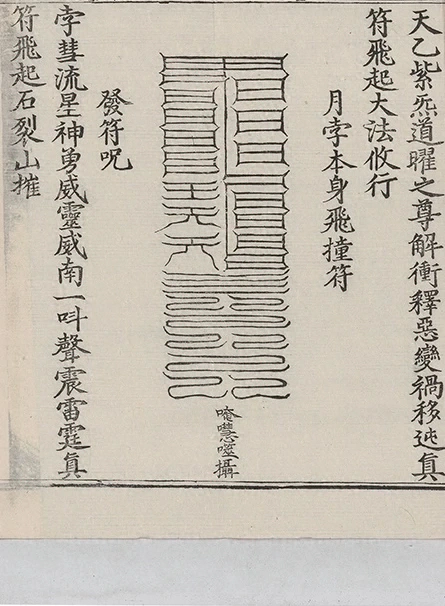 天乙紫炁道曜之尊解衝釋惡變禍移迍真
符飛起大法攸行
月孛本身飛撞符
唵㘄噬攝
發符呪
孛彗流星神勇威靈威南一呌聲震雷霆真
符飛起石裂山摧